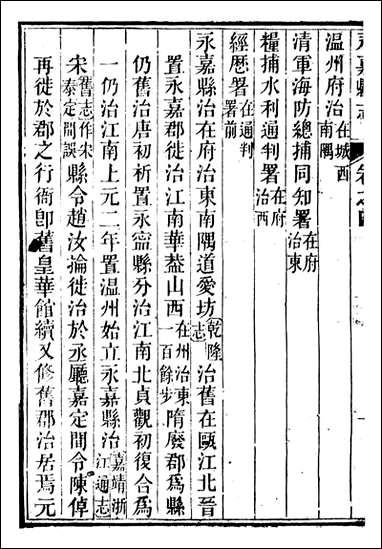 永嘉縣志 卷之四
溫州府治在城西南隅
清軍海防總捕同知署在府治東
糧捕水利通判署在府治西
經歷署在通判署前
永嘉縣治在府治東南隅道愛坊乾隆志治舊在甌江北晉
置永嘉郡徙治江南華葢山西在州治東一百餘步隋廢郡爲縣
仍舊治唐初析置永寧縣分治江南北貞觀初復合爲
一仍治江南上元二年置温州始立永嘉縣治嘉靖浙江通志
宋舊志作宋泰定間誤縣令趙汝掄徙治於丞廳嘉定間令陳倬
再徙於郡之行衙卽舊皇華館續又修舊郡治居焉元